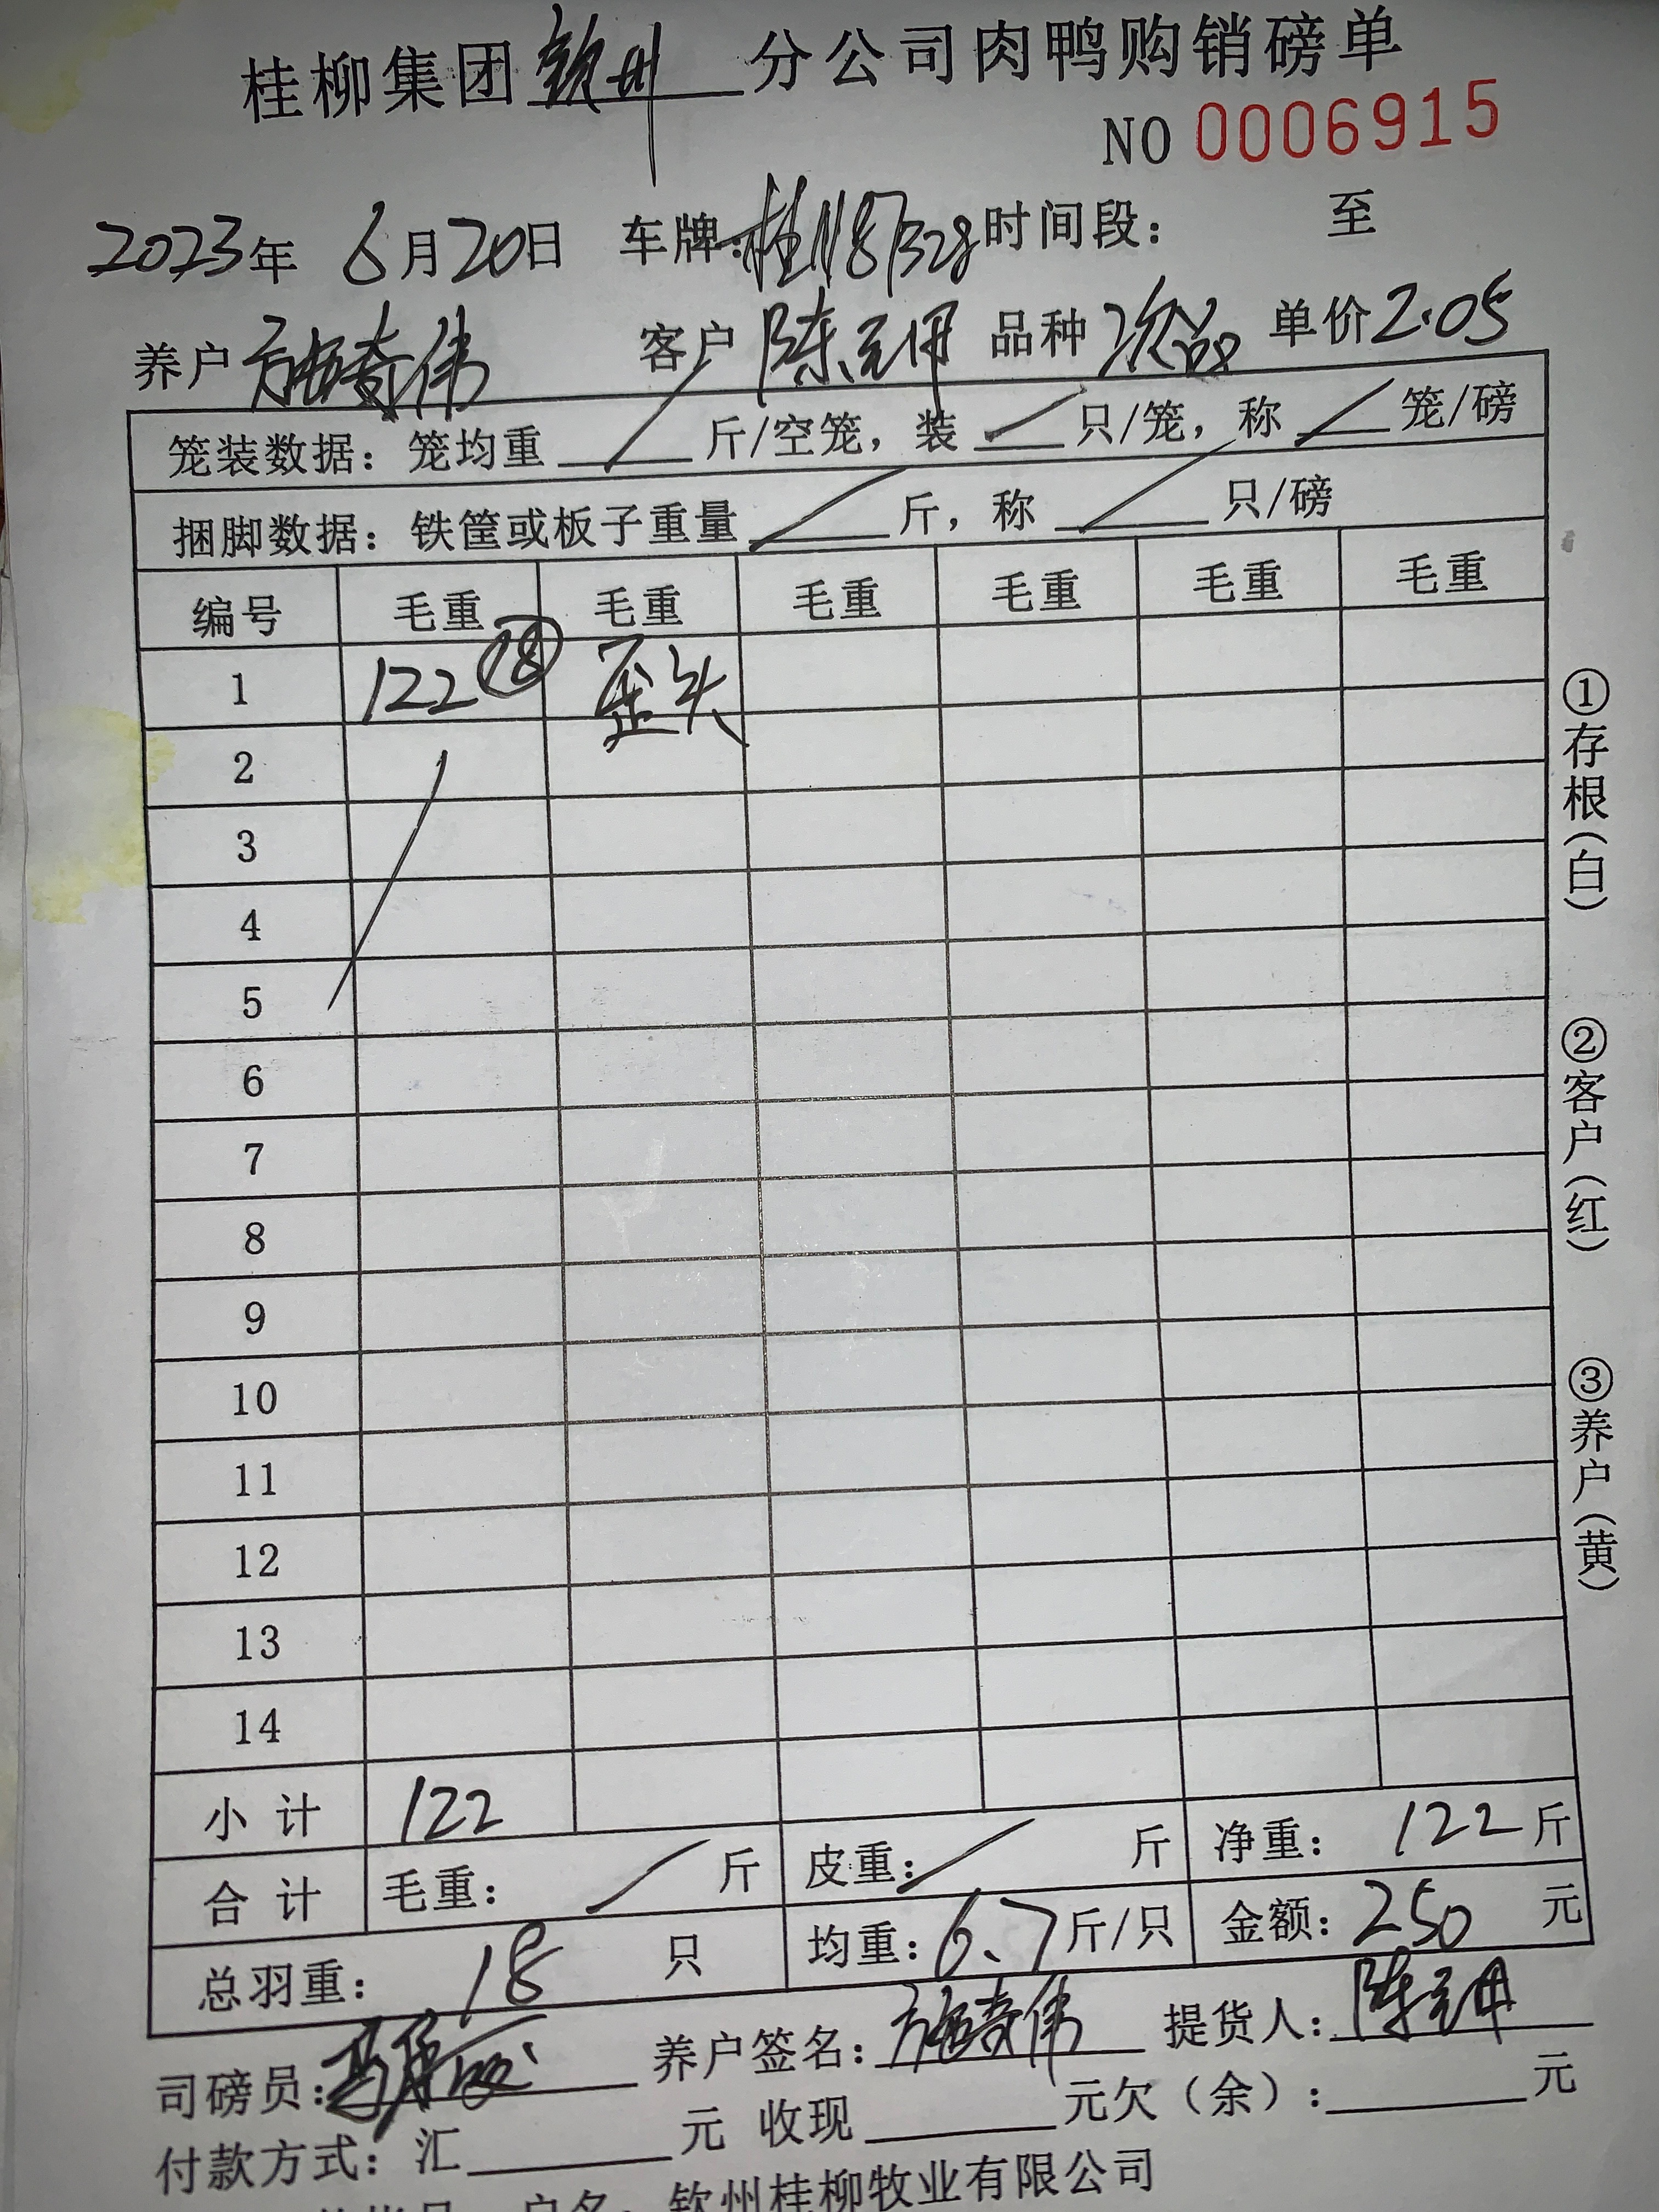 桂柳集团钦州分公司肉鸭购销磅单
NO 0006915
2023年 6月20日 车牌: 时间段: 至
养户 施奇伟 客户 陈 品种 次品 单价 2.05
笼装数据: 笼均重 / 斤/空笼, 装 / 只/笼, 称 / 笼/磅
捆脚数据: 铁筐或板子重量 / 斤, 称 / 只/磅
编号 毛重 毛重 毛重 毛重 毛重 毛重
1 122 ⑱ 歪头
2
3
4
5
6
7
8
9
10
11
12
13
14
小计 122
合计 毛重: / 斤 皮重: / 斤 净重: 122 斤
总羽重: 18 只 均重: 6.7 斤/只 金额: 250 元
司磅员: 养户签名: 施奇伟 提货人: 陈
付款方式: 汇 元 收现 元欠(余): 元
户名: 钦州桂柳牧业有限公司
①存根(白)
②客户(红)
③养户(黄)